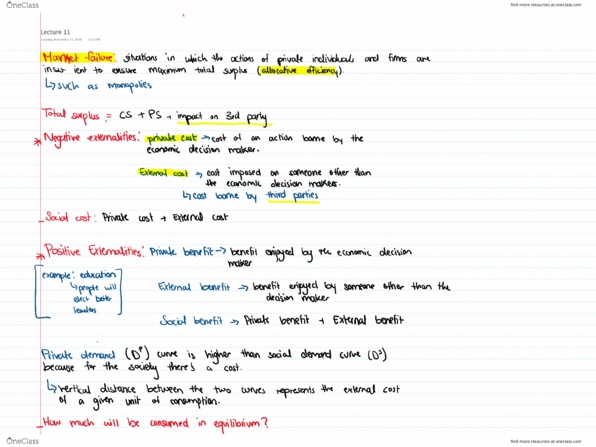 OneClass
find more resources at oneclass.com
Lecture 11
Market failure: situations in which the actions of private individuals and firms are
insur ient to ensure maximum total surplus (allocative efficiency).
↳ such as monopolies
Total surplus = CS + PS + impact on 3rd party
* Negative externalities: private cost → cost of an action borne by the
economic decision maker.
External cost → cost imposed on someone other than
the economic decision makers.
↳ cost borne by third parties
_ Social cost: Private cost + External cost
* Positive Externalities: Private benefit → benefit enjoyed by the economic decision
maker
example: education
↳ people will
elect better
leaders
External benefit → benefit enjoyed by someone other than the
decision maker
Social benefit → Private benefit + External benefit
Private demand (Dᴾ) curve is higher than social demand curve (Dˢ)
because for the society there's a cost.
↳ vertical distance between the two curves represents the external cost
of a given unit of consumption.
_ How much will be consumed in equilibrium?
OneClass
find more resources at oneclass.com